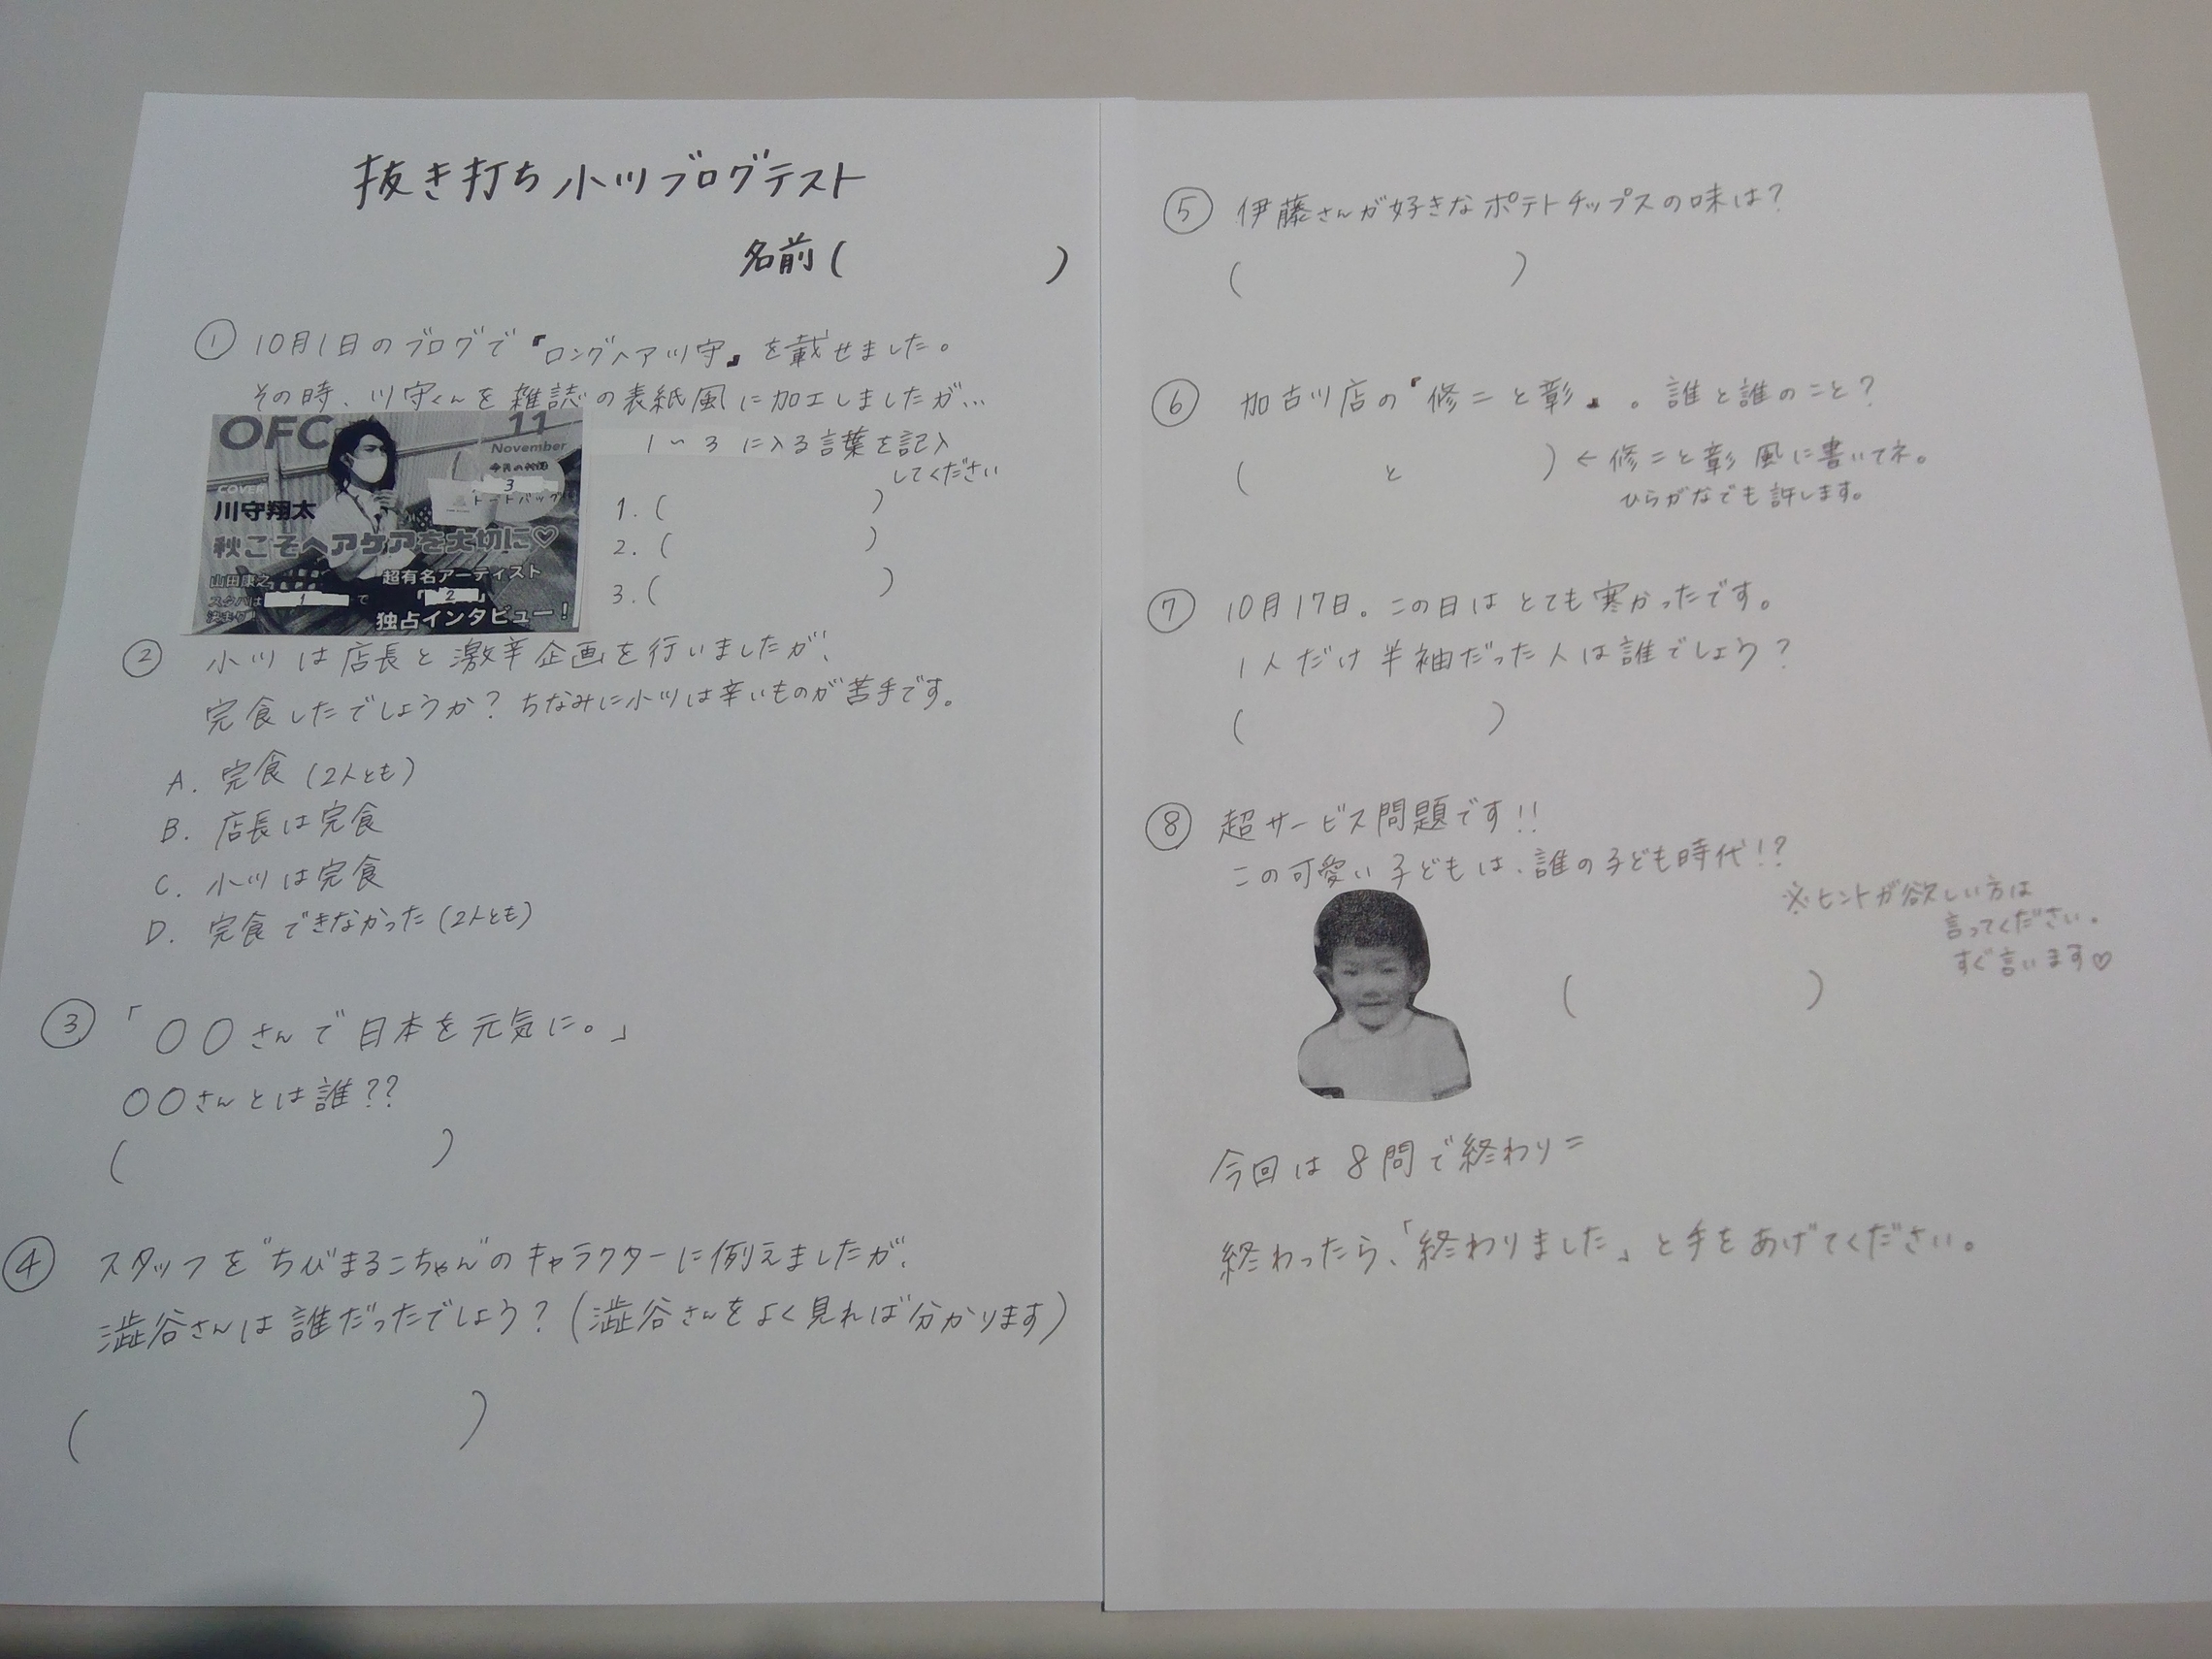 抜き打ち小川ブログテスト
名前(　　　　)
① 10月1日のブログで『ロングヘア川守』を載せました。
その時、川守くんを雑誌の表紙風に加工しましたが…
OFC
11
November
今月の付録
3
トートバッグ
COVER
川守翔太
秋こそヘアケアを大切に♡
山田康之
スタバは 1 で
決まり!
超有名アーティスト
「 2 」
独占インタビュー!
1~3に入る言葉を記入
してください
1.(　　　　)
2.(　　　　)
3.(　　　　)
② 小川は店長と激辛企画を行いましたが、
完食したでしょうか?ちなみに小川は辛いものが苦手です。
A. 完食(2人とも)
B. 店長は完食
C. 小川は完食
D. 完食できなかった(2人とも)
③ 「〇〇さんで日本を元気に。」
〇〇さんとは誰??
(　　　　)
④ スタッフを"ちびまるこちゃん"のキャラクターに例えましたが、
澁谷さんは誰だったでしょう?(澁谷さんをよく見れば分かります)
(　　　　)
⑤ 伊藤さんが好きなポテトチップスの味は?
(　　　　)
⑥ 加古川店の『修二と彰』。誰と誰のこと?
(　　　と　　　)←修二と彰風に書いてネ。
ひらがなでも許します。
⑦ 10月17日。この日はとても寒かったです。
1人だけ半袖だった人は誰でしょう?
(　　　　)
⑧ 超サービス問題です!!
この可愛い子どもは、誰の子ども時代!?
※ヒントが欲しい方は
言ってください。
すぐ言います♡
(　　　　)
今回は8問で終わり=
終わったら、「終わりました」と手をあげてください。